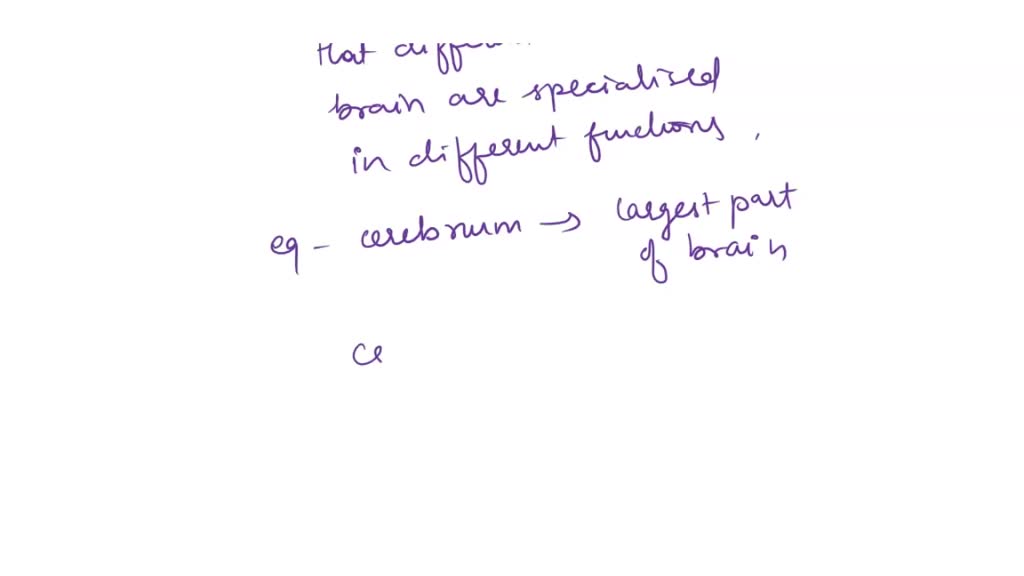 that
brain are specialised
in different functions ,
eg - cerebrum → largest part
of brain
ce